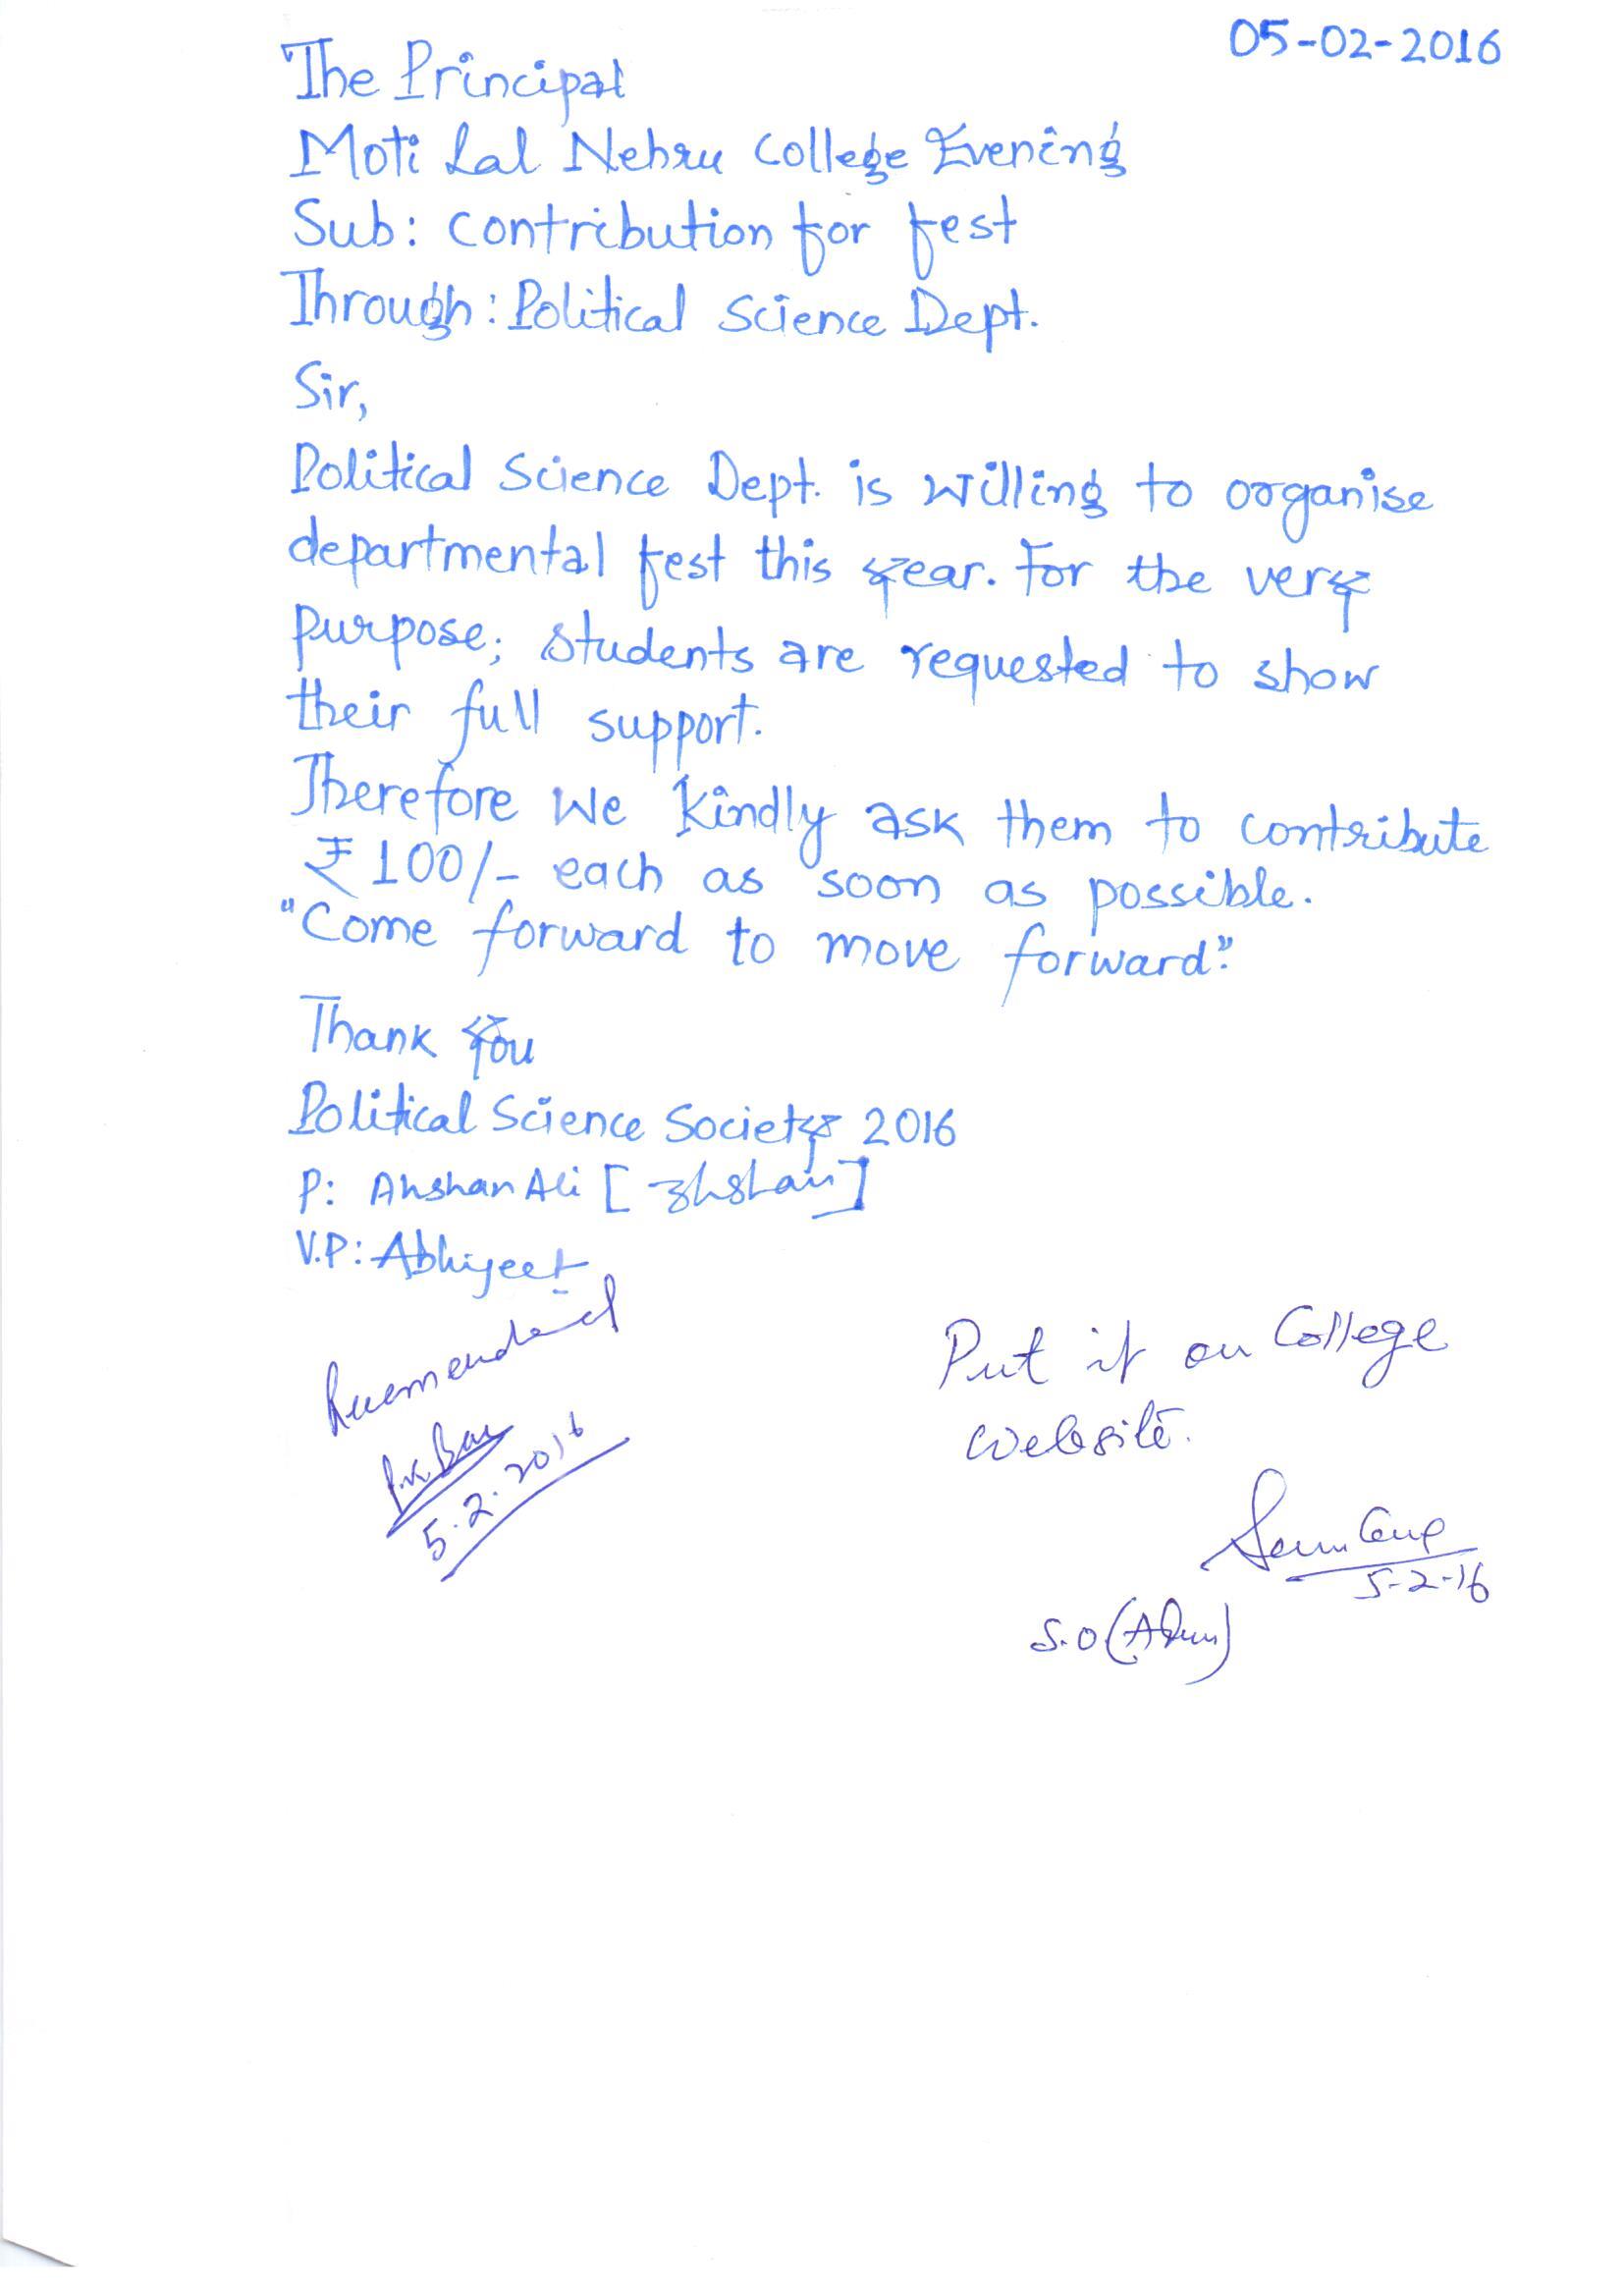 05-02-2016
The Principal
Moti Lal Nehru College Evening
Sub: Contribution for fest
Through: Political Science Dept.
Sir,
Political Science Dept. is willing to organise
departmental fest this year. For the very
purpose; students are requested to show
their full support.
Therefore We kindly ask them to contribute
₹100/- each as soon as possible.
"Come forward to move forward."
Thank you
Political Science Society 2016
P: Ahshan Ali
V.P: Abhijeet
5.2.2016
Put it on College
website.
5-2-16
S.O (Admn)